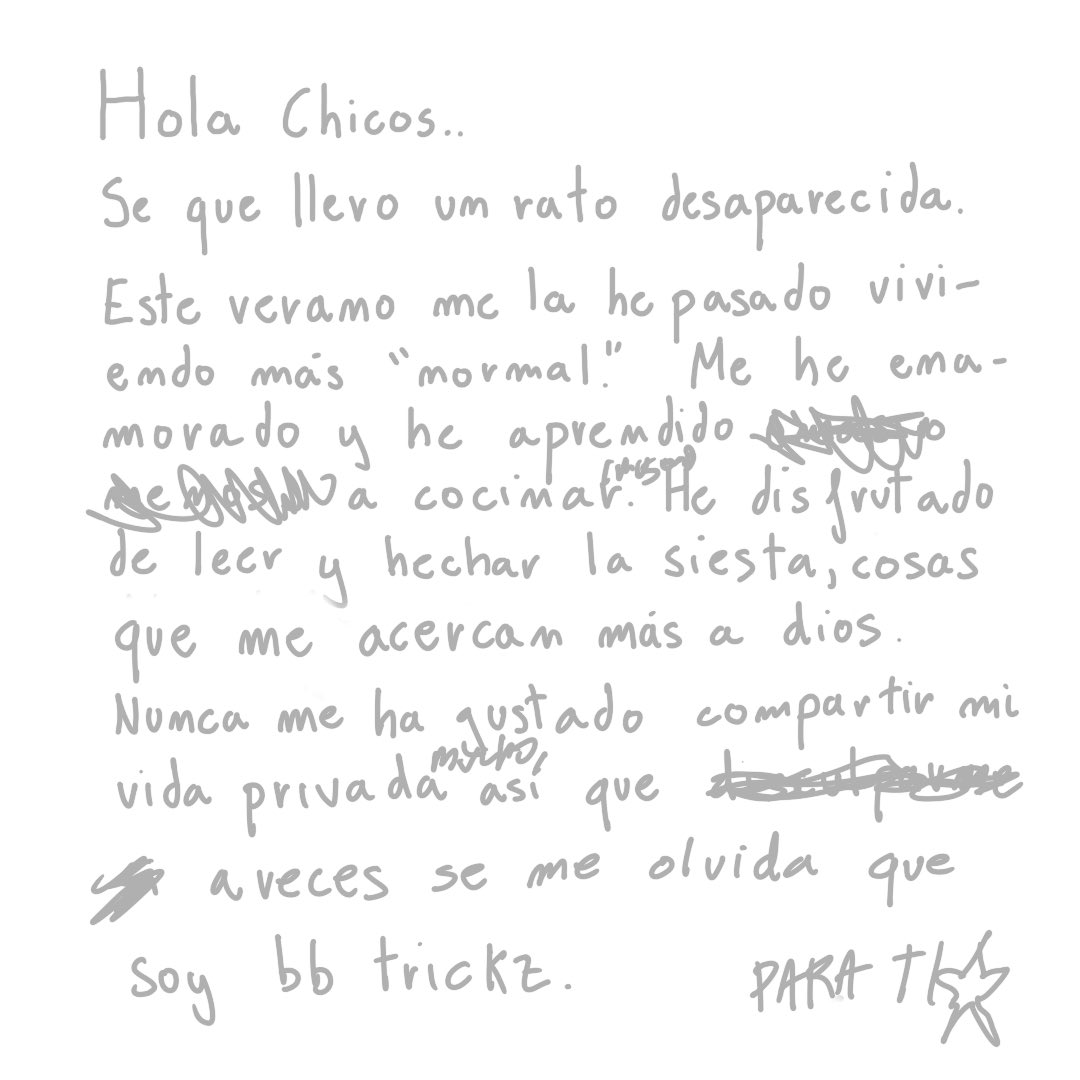 Hola Chicos..
Se que llevo un rato desaparecida.
Este verano me la he pasado vivi-
endo más "normal". Me he ena-
morado y he aprendido
a cocinar. He disfrutado
de leer y hechar la siesta, cosas
que me acercan más a dios.
Nunca me ha gustado compartir mi
mucho,
vida privada así que
a veces se me olvida que
soy bb trickz. PARA TI